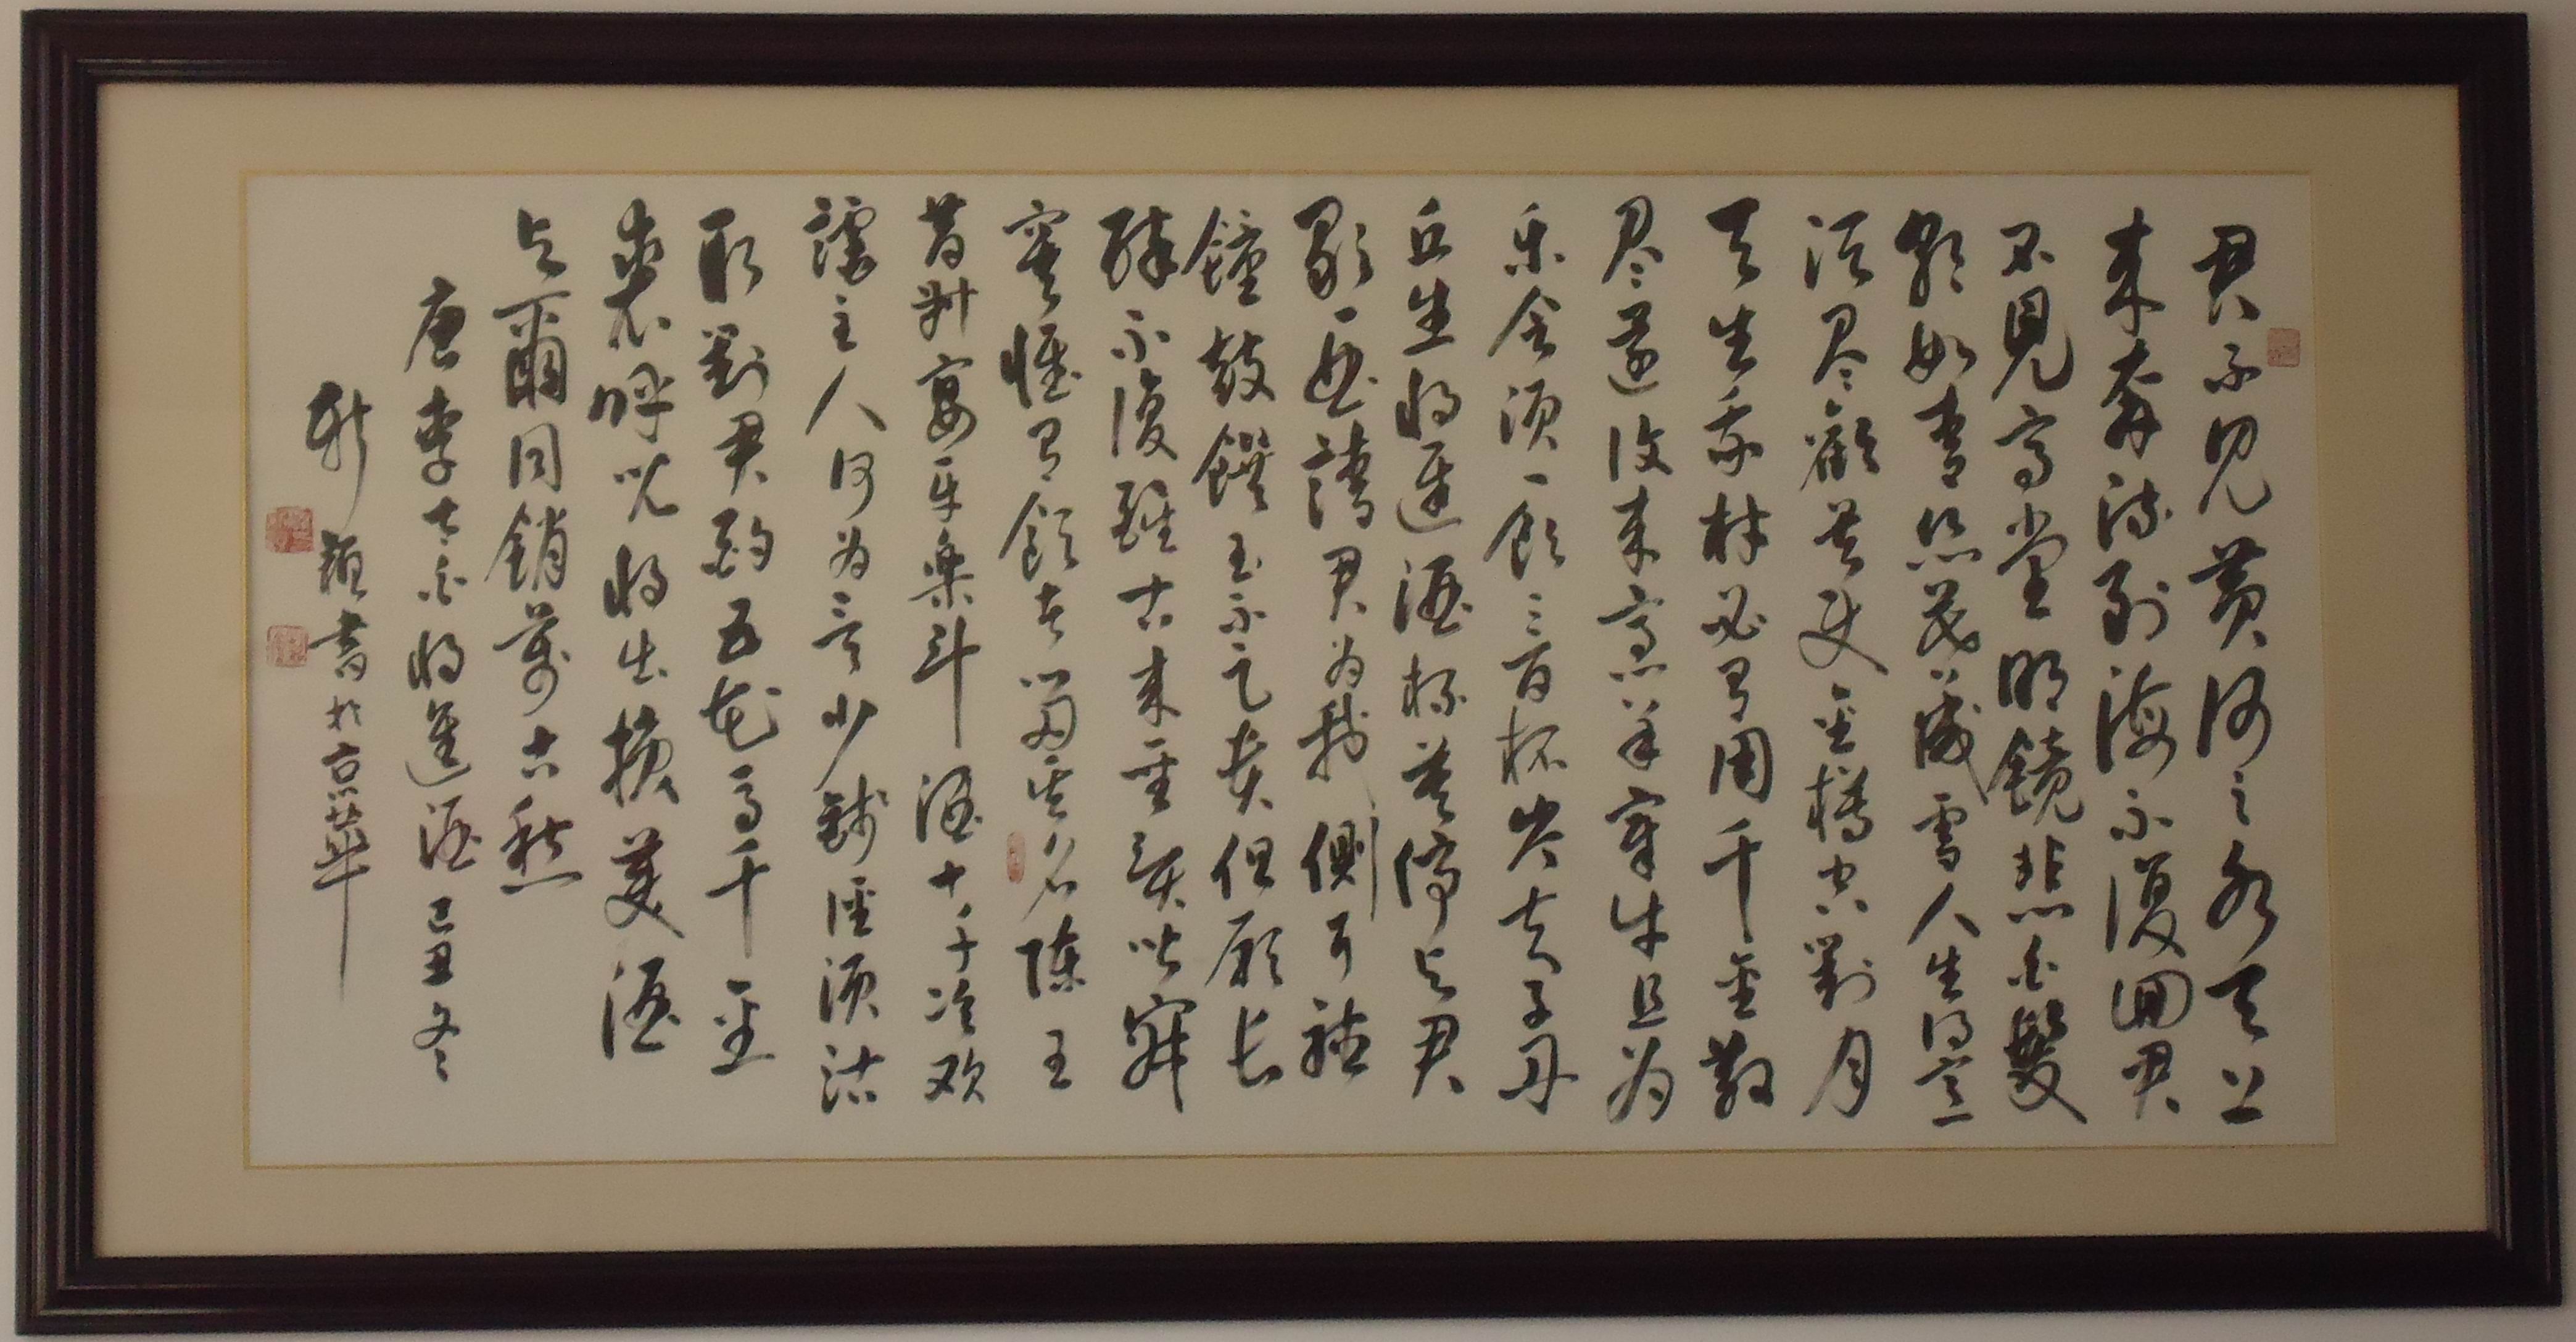 君不見黄河之水天上
来奔流到海不復回君
不見高堂明鏡悲白髮
朝如青丝暮成雪人生得意
須尽歡莫使金樽空對月
天生我材必有用千金散
尽還復来烹羊宰牛且为
乐會須一飲三百杯岑夫子丹
丘生将進酒杯莫停与君
歌一曲請君为我側耳聽
鐘鼓饌玉不足貴但願长
醉不復醒古来聖賢皆寂
寞惟有飲者留其名陳王
昔时宴平樂斗酒十千恣欢
謔主人何为言少錢徑須沽
取對君酌五花馬千金
裘呼児将出換美酒
与爾同銷萬古愁
唐李太白将進酒己丑冬
書於京華